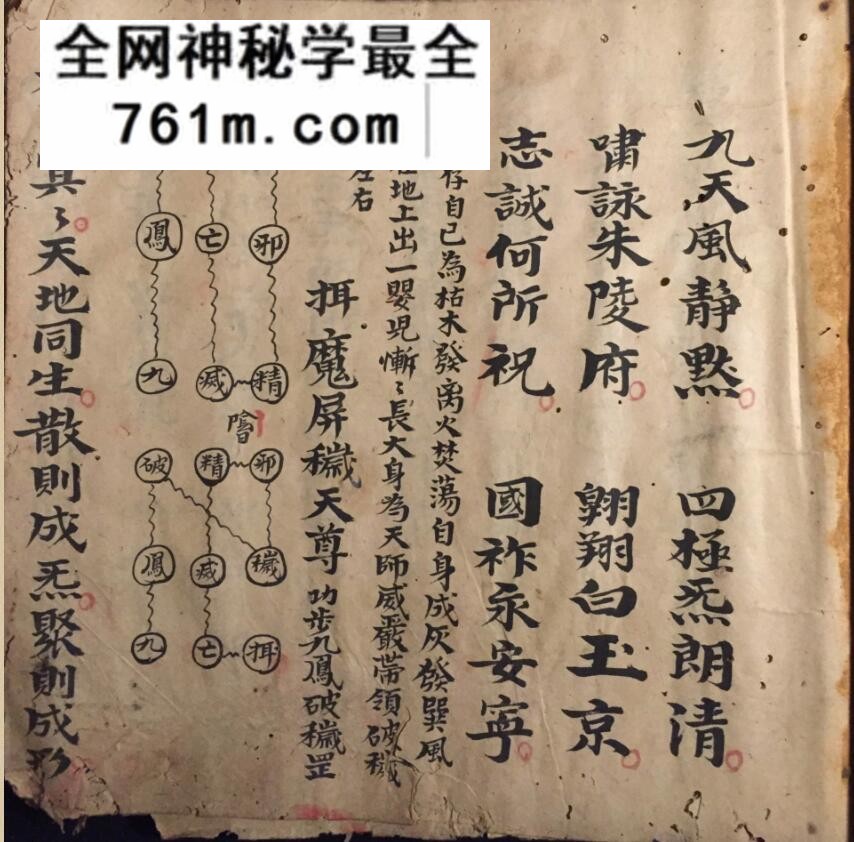 全网神秘学最全
761m.com
九天風静黙 四極炁朗清
嘯詠朱陵府 翺翔白玉京
志誠何所祝 國祚永安寧
存自己為枯木發离火焚蕩自身成灰發巽風
地上出一嬰児慚〻長大身為天師威嚴帶領破穢
左右
挕魔屏穢天尊 功步九鳳破穢罡
邪 精
亡 滅
鳳 九
邪 穢 挕
精 滅 亡
破 鳳 九
真〻天地同生散則成炁聚則成形